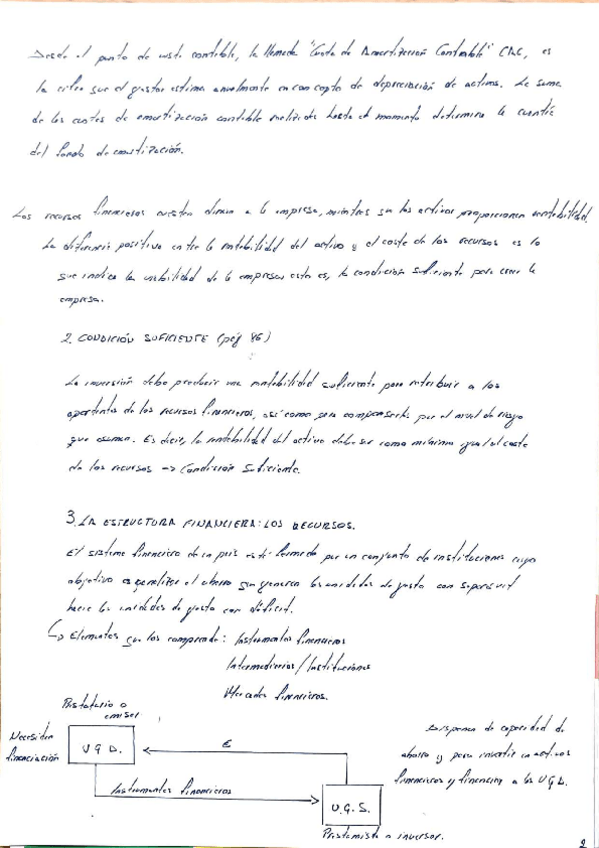 Desde el punto de vista contable, la llamada "Cuota de Amortización Contable" CAC, es
la cifra que el gestor estima anualmente en concepto de depreciación de activos. La suma
de las cuotas de amortización contable realizadas hasta el momento determina la cuantía
del fondo de amortización.
Los recursos financieros cuestan dinero a la empresa, mientras que los activos proporcionan rentabilidad.
La diferencia positiva entre la rentabilidad del activo y el coste de los recursos es lo
que indica la viabilidad de la empresa esto es, la condición suficiente para crear la
empresa.
2. CONDICIÓN SUFICIENTE (pág 86)
La inversión debe producir una rentabilidad suficiente para retribuir a los
aportantes de los recursos financieros, así como para compensarles por el nivel de riesgo
que asumen. Es decir, la rentabilidad del activo debe ser como mínimo igual al coste
de los recursos -> Condición Suficiente.
3. LA ESTRUCTURA FINANCIERA: LOS RECURSOS.
El sistema financiero de un país está formado por un conjunto de instituciones cuyo
objetivo es canalizar el ahorro que generan las unidades de gasto con superávit
hacia las unidades de gasto con déficit.
↳ Elementos que los comprende: Instrumentos financieros
Intermediarios / Instituciones
Mercados financieros.
Prestatario o
emisor
Necesitan
financiación
U G D.
€
Instrumentos financieros
U.G.S.
Prestamista o inversor.
Disponen de capacidad de
ahorro y para invertir en activos
financieros y financian a las U G D.
2